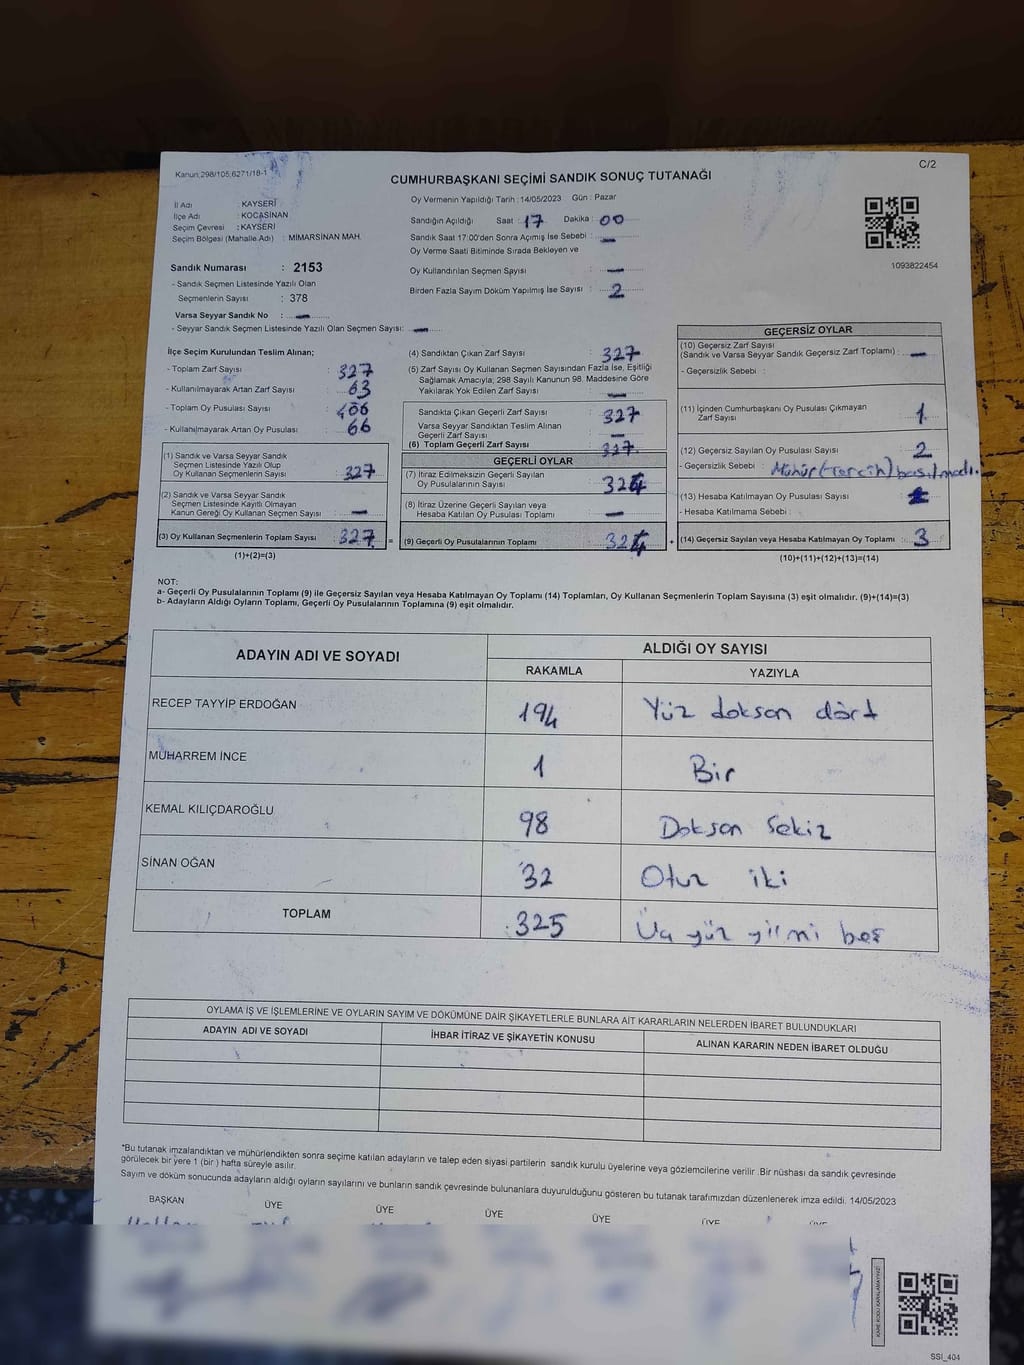 Kanun;298/105;6271/18-1
C/2
CUMHURBAŞKANI SEÇİMİ SANDIK SONUÇ TUTANAĞI
İl Adı : KAYSERİ
İlçe Adı : KOCASİNAN
Seçim Çevresi : KAYSERİ
Seçim Bölgesi (Mahalle Adı) : MİMARSİNAN MAH.
Oy Vermenin Yapıldığı Tarih : 14/05/2023 Gün : Pazar
Sandığın Açıldığı Saat : 17 Dakika : 00
Sandık Saat 17:00'den Sonra Açımış İse Sebebi : —
Oy Verme Saati Bitiminde Sırada Bekleyen ve
Oy Kullandırılan Seçmen Sayısı : —
Birden Fazla Sayım Döküm Yapılmış İse Sayısı : 2
1093822454
Sandık Numarası : 2153
- Sandık Seçmen Listesinde Yazılı Olan
Seçmenlerin Sayısı : 378
Varsa Seyyar Sandık No : —
- Seyyar Sandık Seçmen Listesinde Yazılı Olan Seçmen Sayısı: —
İlçe Seçim Kurulundan Teslim Alınan;
- Toplam Zarf Sayısı : 327
- Kullanılmayarak Artan Zarf Sayısı : 63
- Toplam Oy Pusulası Sayısı :
- Kullanılmayarak Artan Oy Pusulası : 66
(1) Sandık ve Varsa Seyyar Sandık
Seçmen Listesinde Yazılı Olup
Oy Kullanan Seçmenlerin Sayısı : 327
(2) Sandık ve Varsa Seyyar Sandık
Seçmen Listesinde Kayıtlı Olmayan
Kanun Gereği Oy Kullanan Seçmen Sayısı : —
(3) Oy Kullanan Seçmenlerin Toplam Sayısı : 327
(1)+(2)=(3)
(4) Sandıktan Çıkan Zarf Sayısı : 327
(5) Zarf Sayısı Oy Kullanan Seçmen Sayısından Fazla İse, Eşitliği
Sağlamak Amacıyla; 298 Sayılı Kanunun 98. Maddesine Göre
Yakılarak Yok Edilen Zarf Sayısı : —
Sandıkta Çıkan Geçerli Zarf Sayısı : 327
Varsa Seyyar Sandıktan Teslim Alınan
Geçerli Zarf Sayısı : —
(6) Toplam Geçerli Zarf Sayısı : 327
GEÇERLİ OYLAR
(7) İtiraz Edilmeksizin Geçerli Sayılan
Oy Pusulalarının Sayısı : 324
(8) İtiraz Üzerine Geçerli Sayılan veya
Hesaba Katılan Oy Pusulası Toplamı : —
(9) Geçerli Oy Pusulalarının Toplamı : 324
GEÇERSİZ OYLAR
(10) Geçersiz Zarf Sayısı
(Sandık ve Varsa Seyyar Sandık Geçersiz Zarf Toplamı) : —
- Geçersizlik Sebebi :
(11) İçinden Cumhurbaşkanı Oy Pusulası Çıkmayan
Zarf Sayısı : 1
(12) Geçersiz Sayılan Oy Pusulası Sayısı : 2
- Geçersizlik Sebebi : Mühür (Tercih) basılmadı.
(13) Hesaba Katılmayan Oy Pusulası Sayısı :
- Hesaba Katılmama Sebebi :
(14) Geçersiz Sayılan veya Hesaba Katılmayan Oy Toplamı : 3
(10)+(11)+(12)+(13)=(14)
NOT:
a- Geçerli Oy Pusulalarının Toplamı (9) ile Geçersiz Sayılan veya Hesaba Katılmayan Oy Toplamı (14) Toplamları, Oy Kullanan Seçmenlerin Toplam Sayısına (3) eşit olmalıdır. (9)+(14)=(3)
b- Adayların Aldığı Oyların Toplamı, Geçerli Oy Pusulalarının Toplamına (9) eşit olmalıdır.
ADAYIN ADI VE SOYADI ALDIĞI OY SAYISI
RAKAMLA YAZIYLA
RECEP TAYYİP ERDOĞAN 194 Yüz doksan dört
MUHARREM İNCE 1 Bir
KEMAL KILIÇDAROĞLU 98 Doksan Sekiz
SİNAN OĞAN 32 Otuz iki
TOPLAM 325 Üç yüz yirmi beş
OYLAMA İŞ VE İŞLEMLERİNE VE OYLARIN SAYIM VE DÖKÜMÜNE DAİR ŞİKAYETLERLE BUNLARA AİT KARARLARIN NELERDEN İBARET BULUNDUKLARI
ADAYIN ADI VE SOYADI İHBAR İTİRAZ VE ŞİKAYETİN KONUSU ALINAN KARARIN NEDEN İBARET OLDUĞU
*Bu tutanak imzalandıktan ve mühürlendikten sonra seçime katılan adayların ve talep eden siyasi partilerin sandık kurulu üyelerine veya gözlemcilerine verilir. Bir nüshası da sandık çevresinde
görülecek bir yere 1 (bir ) hafta süreyle asılır.
Sayım ve döküm sonucunda adayların aldığı oyların sayılarını ve bunların sandık çevresinde bulunanlara duyurulduğunu gösteren bu tutanak tarafımızdan düzenlenerek imza edildi. 14/05/2023
BAŞKAN ÜYE ÜYE ÜYE ÜYE ÜYE
KARE KODU KARALAMAYINIZ!
SSI_404